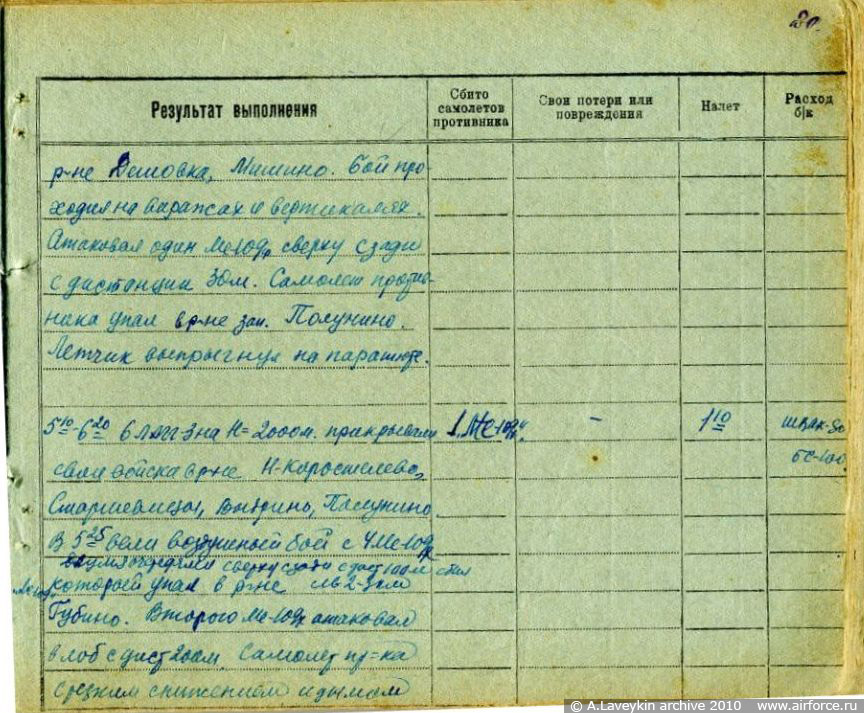 20.
Результат выполнения
Сбито самолетов противника
Свои потери или повреждения
Налет
Расход б/к
р-не Дешовка, Мишино. Бой про-
ходил на виражах и вертикалях.
Атаковал один Ме-109ф сверху сзади
с дистанции 30м. Самолет против-
ника упал в р-не зап. Полунино.
Летчик выпрыгнул на парашюте.
5 10-6 20 6 ЛАГГ-3 на Н=2000м. прикрывали 1 Ме-109ф. - 1 10 ШВАК-80
свои войска в р-не Н-Коростелево, БС-100
Старшевицы, Выдрино, Полунино.
В 5 25 вели воздушный бой с 4 Ме-109ф
двумя очередями сверху сзади с дист 100м сбил
Ме-109ф который упал в р-не 2-3км
Губино. Второго Ме-109ф атаковал
в лоб с дист 200м. Самолет пр-ка
с резким снижением и дымом
© A.Laveykin archive 2010 www.airforce.ru